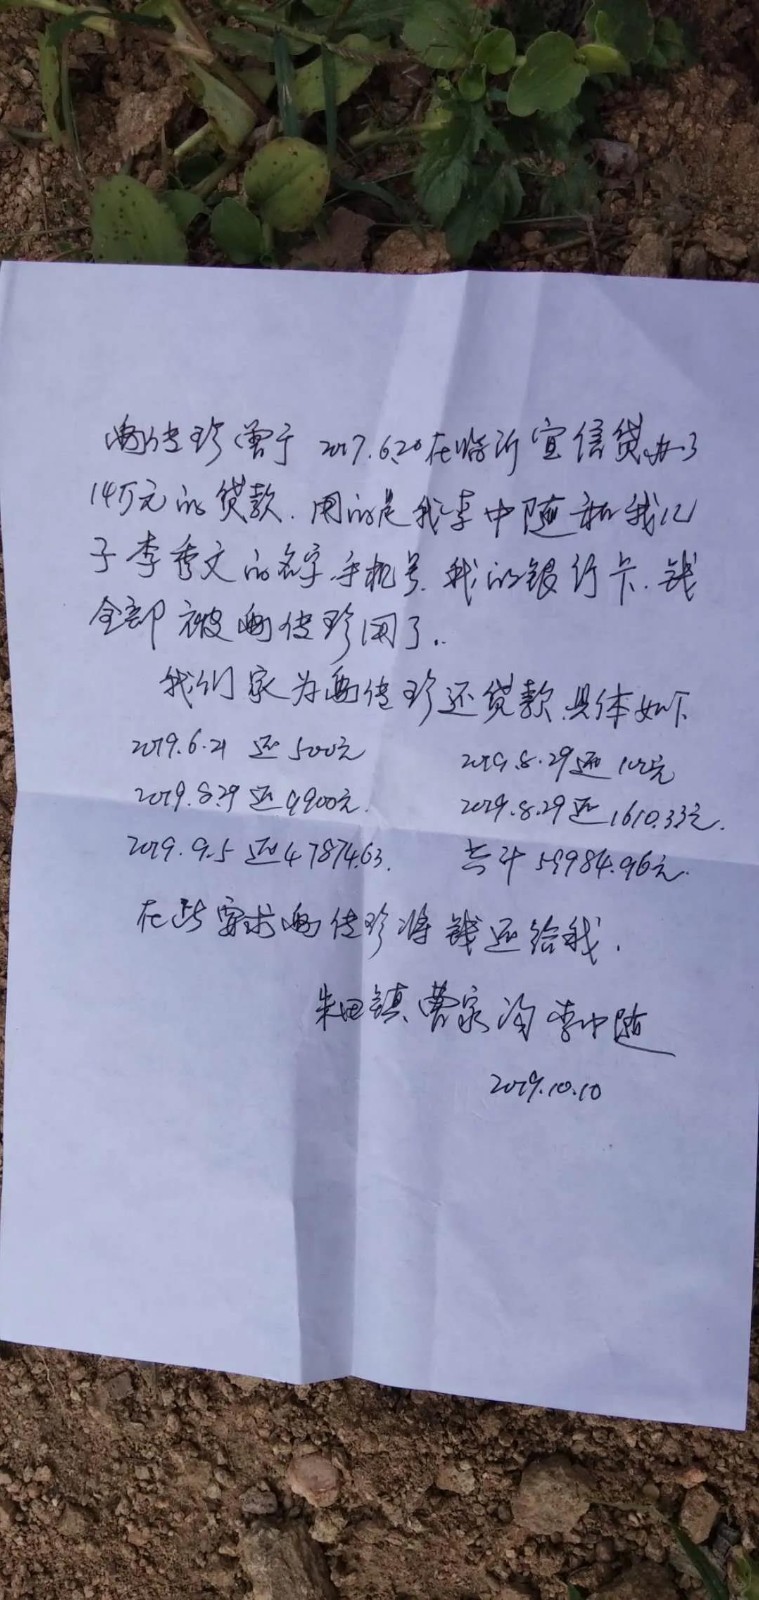 传珍曾于2017.6.20在临沂宜信贷办了
14万元的贷款.用的是我李中随和我儿
子李秀文的名字.手机号.我的银行卡.钱
全部被传珍用了.
我们家为传珍还贷款.具体如下
2019.6.21还500元 2019.8.29还100元
2019.8.29还9900元. 2019.8.29还1610.33元.
2019.9.5还47874.63. 共计59984.96元.
在此要求传珍将钱还给我.
朱田镇曹家沟李中随
2019.10.10